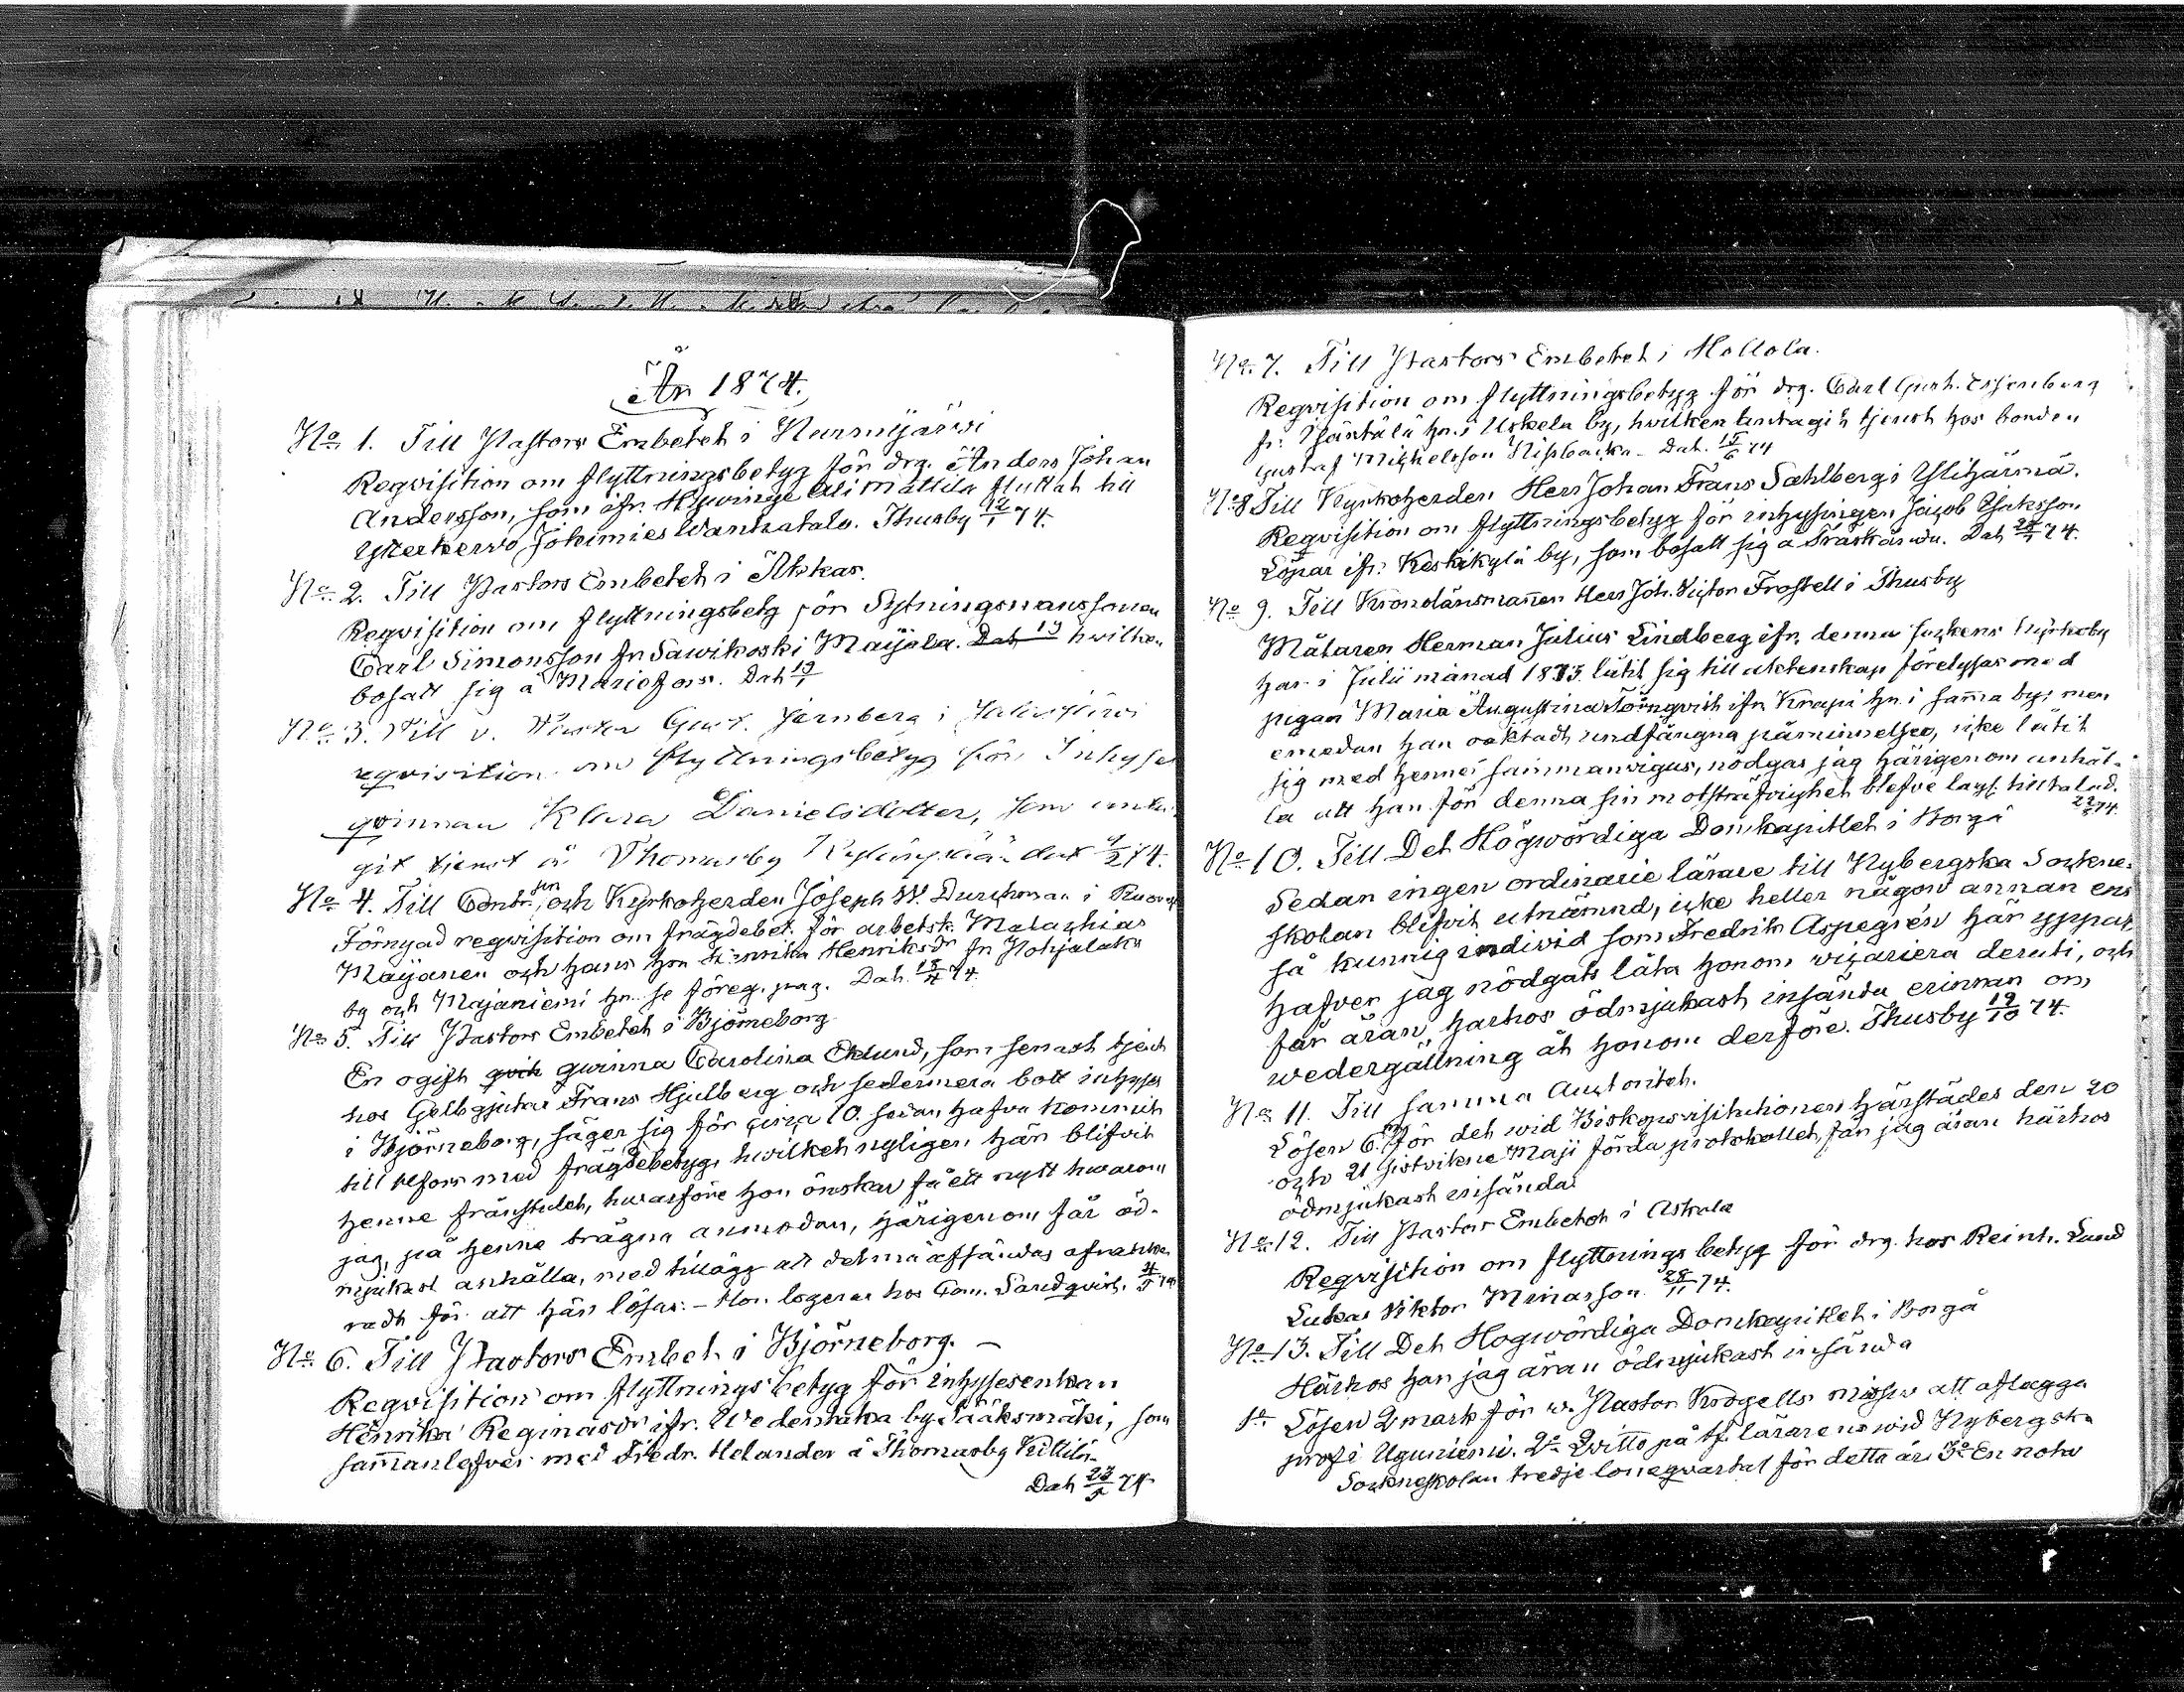 År 1874.
No 1. Till Pastors Embetet i Nurmijärwi
Reqvisition om flyttningsbetyg för drg. Anders Johan
Andersson, som ifr. Hyvinge Ali Mattila flyttat till
Ytterkerwo Johimies Wanhatalo. Thusby 12/1 74.
No 2. Till Pastors Embetet i Akkas.
Reqvisition om flyttningsbetg för Sytningsmanssonen
Carl Simonsson fr Sawikoski Majsla. Dat 19 hvilken
bosatt sig å Mariefors. Dat 19/1
No 3. Till v. Pastor Gust. Jernberg i
reqvisition om flyttningsbetyg för Inhyses
qvinnan Klara Danielsdotter, som anta-
git tjenst å Thomasby dat 4/2 74.
No 4. Till Contr.pn och Kyrkoherden Joseph W. Durchman i
Förnyad reqvisition om frägdebet. för arbetsk. Malachias
Maijanen och hans hu Henriksdr fr Pohjalaks
by och Majaniemi hn. se föreg. pag. Dat. 18/4 74
No 5. Till Pastors Embetet i Björneborg
En ogift qvin qwinna Carolina Eklund, som senast tjent
hos Gelbgjutar Frans Hjulberg och sedermera bott inhyses
i Björneborg, säger sig för circa 10. sedan hafva kommit
till med frägdebetyg, hwilket nyligen här blifvit
henne frånstulet, hwarföre hon önskar få ett nytt hwarom
jag, på henne trägna anmodan, härigenom får öd-
mjukast anhålla, med tillägg att det må afsändas ofranke-
radt för att här lösas. – Hon logerar hos Sandqvist. 4/5 74
No 6. Till Pastors Embet i Björneborg. –
Reqvisition om flyttningsbetyg för inhysesenkan
Henrika Reginasdr ifr. by Sääksmäki, som
sam̄anlefver med Fredr. Helander å Thomasby
Dat 23/5 74
No 7. Till Pastors Embetet i Hollola.
Reqvisition om flyttningsbetyg för drg. Carl Gust.
fr. hn. i Uskela by, hvilken antagit tjenst hos bonden
Gustaf Michelsson Nissbacka. Dat. 15/6 74
No 8 Till Kyrkoherden Herr Johan Frans Sahlberg i Ylihärmä.
Reqvisition om flyttningsbetyg för inhysingen Jacob Isaksson
Löpar ifr. Keskikylä by, som bosatt sig å Träskända. Dat 74.
No 9. Till Kronolänsman̄en Herr Joh. Victor Frostell i Thusby
Målaren Herman Julius Lindberg ifr. denna sockens Kyrkoby
har i Julii månad 1873 låtit sig till äktenskap förelysas med
pigan Maria Augustina Törnqvist ifr. Krapi hn. i sam̄a by; men
emedan han oaktadt undfångna påminnelser, icke låtit
sig med henne sammanvigas, nödgas jag härigenom anhål-
la att han för denna sin motsträfvighet blefve lagl. tilltalad.
74.
No 10. Till Det Högwördiga Domkapitlet i Borgå
Sedan ingen ordinarie lärare till Nybergska Sockne-
skolan blifvit utnämnd, icke heller någon annan ens
så kunnig individ som Fredrik Aspegrén här yppat,
hafver jag nödgats låta honom vicariera deruti, och
får äran härhos ödmjukast insända erinran om
wedergällning åt honom derföre. Thusby 19/10 74.
No 11. Till samma Auctoritet.
Lösen 6. för det wid Biskopsvisitationen härstädes den 20
och 21 sistvikne Maji förda protokollet, får jag äran härhos
ödmjukast insända.
No 12. Till Pastors Embetet i Askola
Reqvisition om flyttningsbetyg för drg. hos Reinh. Lund
Lukas Viktor Minasson. 28/11 74.
No 13. Till Det Hogwördiga Domkapitlet i Borgå
Härhos har jag äran ödmjukast insända
1o. Lösen 2 mark för v. Pastor Krogells att aflägga
prof i Uguniemi. 2o. Qvitto på lärarens wid Nybergska
Sockneskolan tredje löneqvartal för detta år. 3o En nota